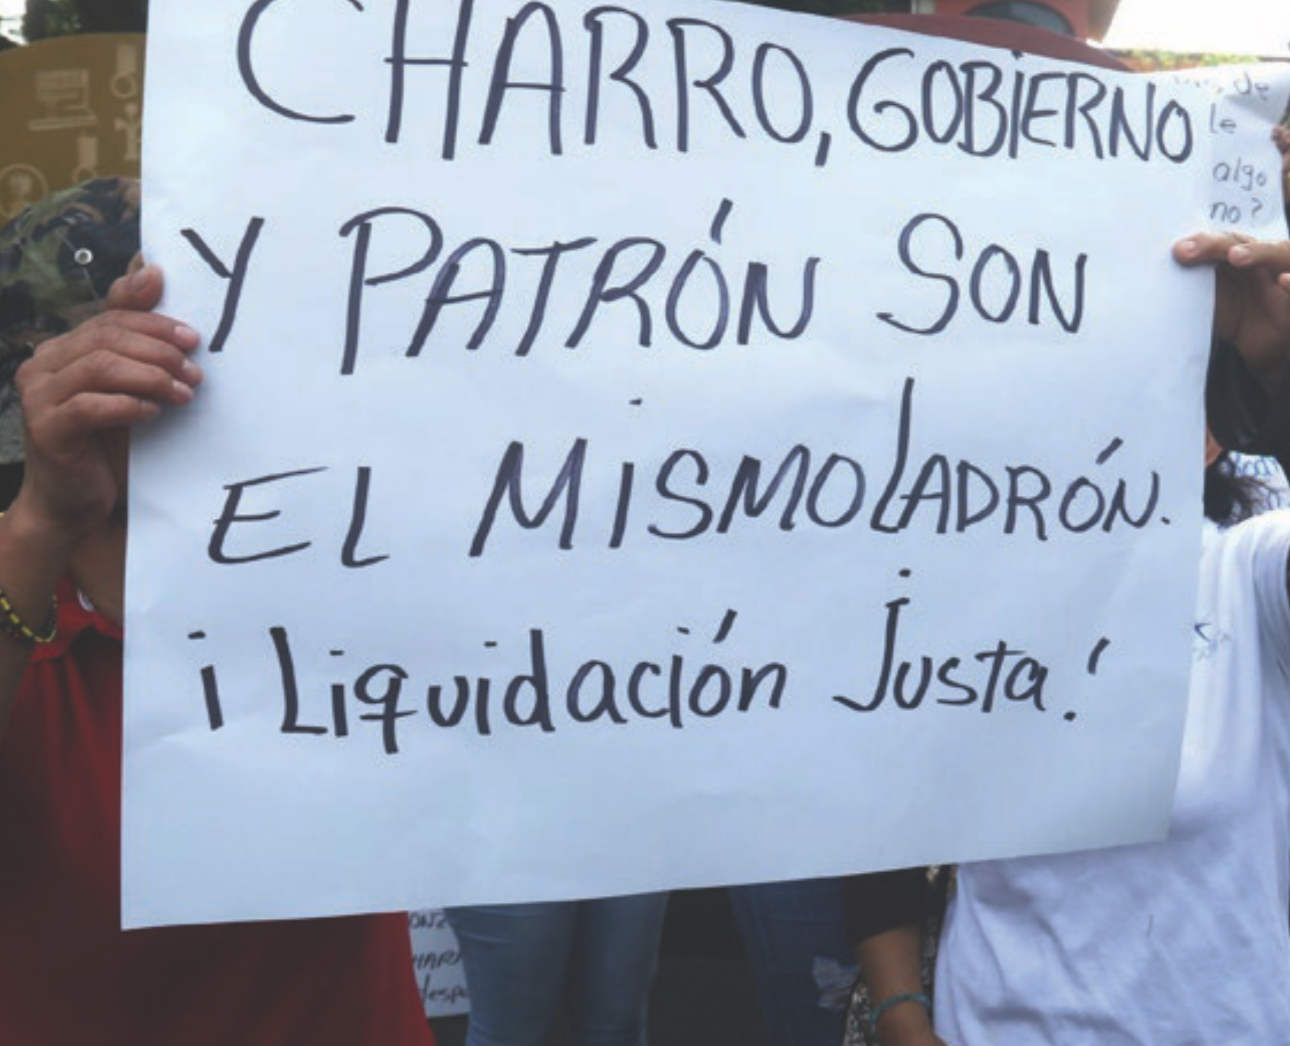 CHARRO, GOBIERNO
Y PATRÓN SON
EL MISMO LADRÓN.
¡Liquidación Justa!
de
le
algo
no?